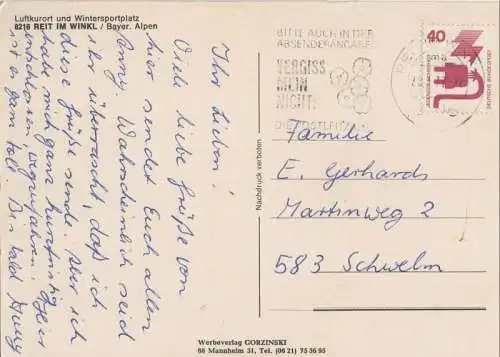 Luftkurort und Wintersportplatz
8216 REIT IM WINKL / Bayer. Alpen
Ihr Lieben!
Viele liebe Grüße von
hier sendet Euch allen
Anny. Wahrscheinlich seid
ihr überrascht, daß ich
diese Grüße sende. Aber ich
habe mich ganz kurzfristig
entschlossen, wegzufahren.
ist es ganz toll. Bis bald Anny
BITTE AUCH IN DER
ABSENDERANGABE
VERGISS
MEIN
NICHT:
DIE POSTLEITZAHL
40
DEUTSCHE BUNDESPOST
Nachdruck verboten
Familie
E. Gerhards
Martinweg 2
583 Schwelm
Werbeverlag GORZINSKI
68 Mannheim 31, Tel. (06 21) 75 56 95